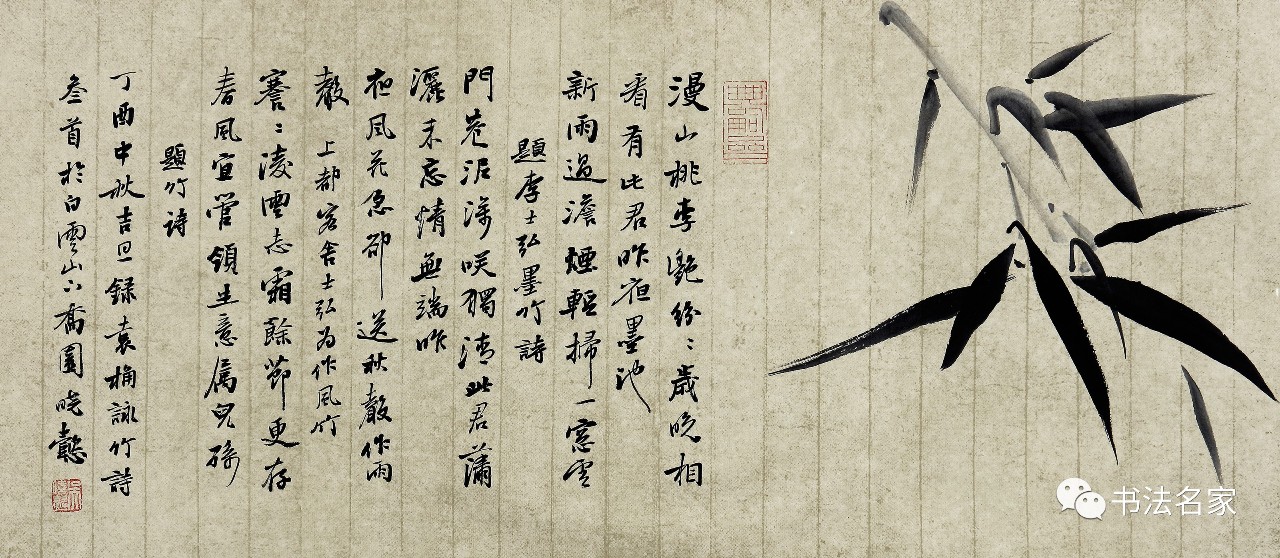 漫山桃李艷紛〻歲晚相
看有此君昨夜墨池
新雨過澹煙輕掃一窓雲
題李士弘墨竹詩
門巷泥深咲獨清此君蕭
灑未忘情無端昨
夜風花急卻送秋聲作雨
聲 上都客舍士弘為作風竹
謇〻凌雲志霜餘節更存
春風宜管領生意属兒孫
題竹詩
丁酉中秋吉旦錄袁桷詠竹詩
叁首於白雲山下喬園晓懿
书法名家